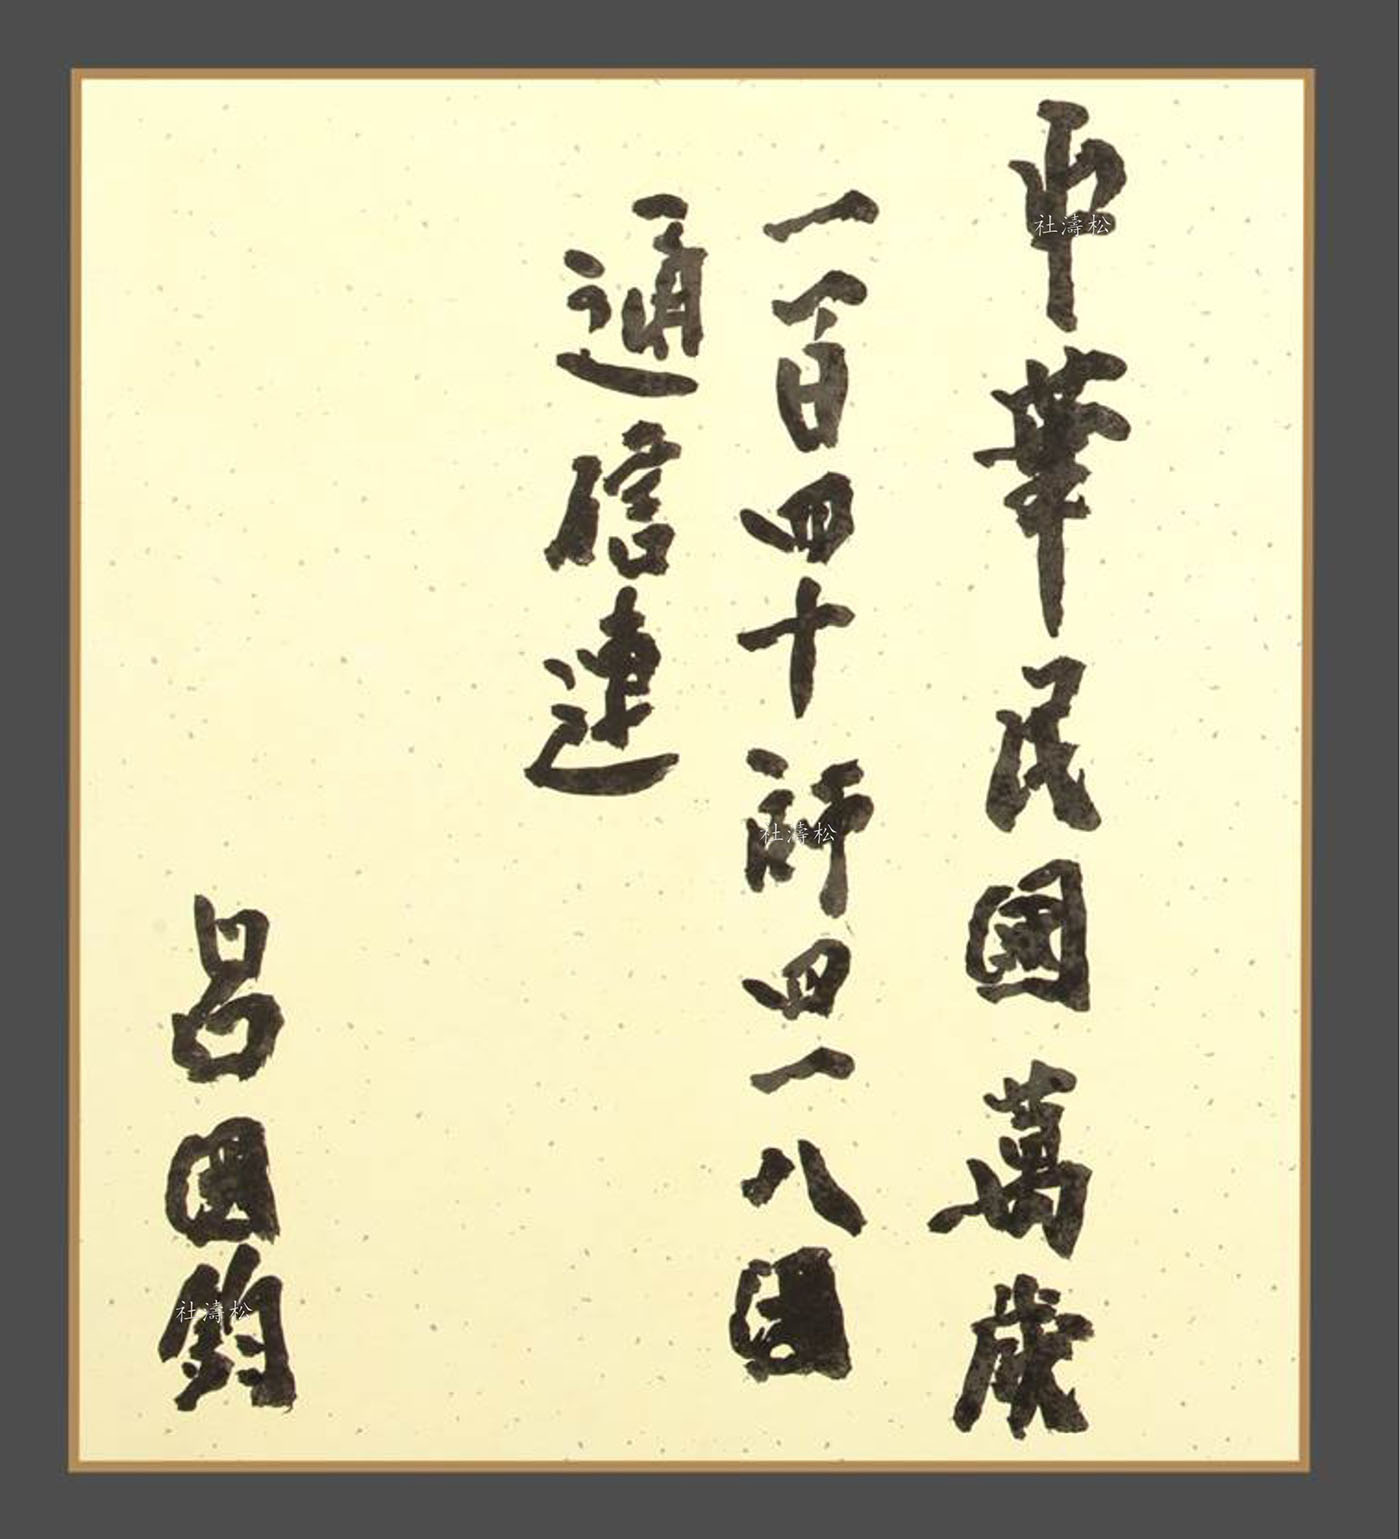 中華民國萬歲
一百四十師四一八團
通信連
呂國鈞
松濤社
松濤社
松濤社